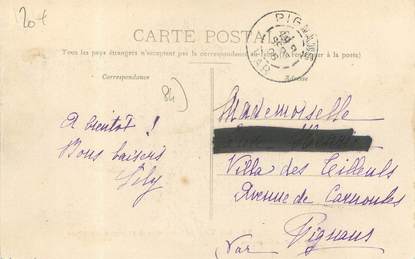 20 f
CARTE POSTALE
Tous les pays étrangers n'acceptent pas la correspondance
à la poste)
Correspondance
Adresse
PIGNANS
VAR
84
A bientôt !
Bons baisers
Lily
Mademoiselle
Villa des Tilleuls
Avenue de Carnoules
Pignans
Var